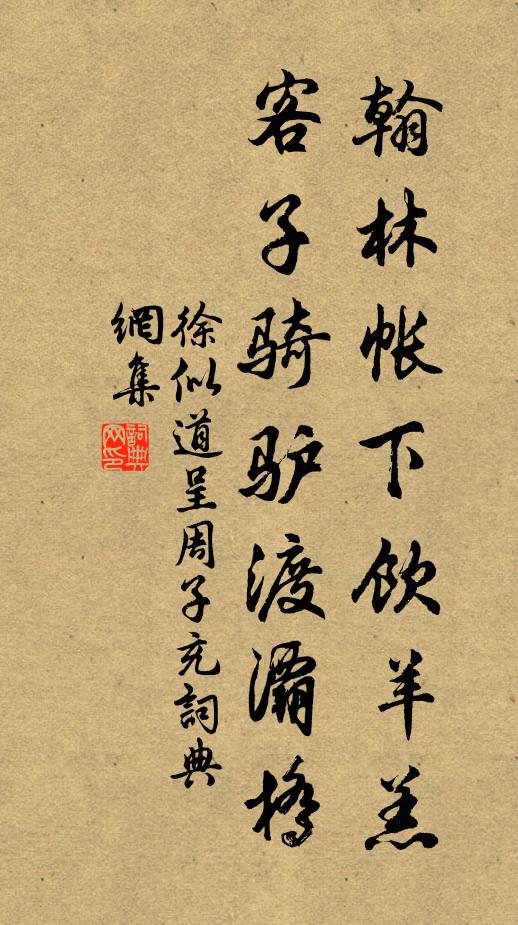 翰林帐下饮羊羔
客子骑驴渡灞桥
徐似道呈周子充詞典
網集
詞典網印